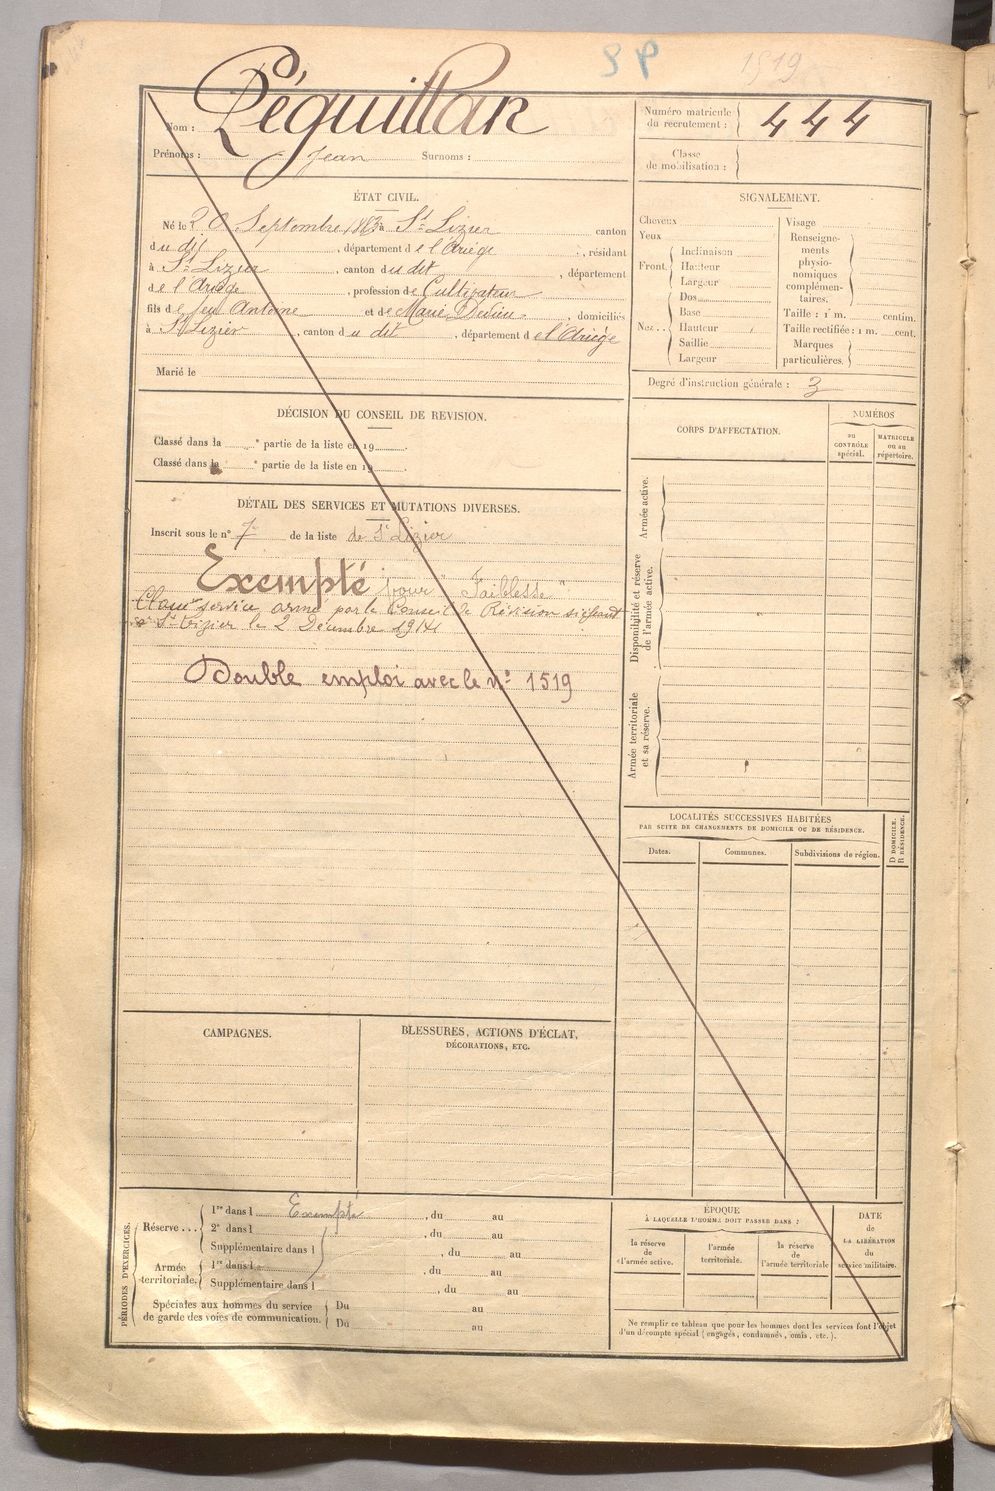 SP 1519
Nom : Péguillan
Prénoms : Jean Surnoms :
Numéro matricule du recrutement : 444
Classe de mobilisation :
ÉTAT CIVIL.
Né le 20 Septembre à St Lizier canton
du dit, département de l'Ariège, résidant
à St Lizier, canton du dit, département
de l'Ariège, profession de Cultivateur
fils de feu Antoine et de Marie Dedieu, domiciliés
à St Lizier, canton du dit, département de l'Ariège
Marié le
SIGNALEMENT.
Cheveux
Yeux
Front
Inclinaison
Hauteur
Largeur
Nez
Dos
Base
Hauteur
Saillie
Largeur
Visage
Renseigne-
ments
physio-
nomiques
complémen-
taires.
Taille : 1 m. centim.
Taille rectifiée : 1 m. cent.
Marques
particulières.
Degré d'instruction générale : 3
DÉCISION DU CONSEIL DE REVISION.
Classé dans la e partie de la liste en 19
Classé dans la e partie de la liste en 19
DÉTAIL DES SERVICES ET MUTATIONS DIVERSES.
Inscrit sous le n° 7 de la liste de St Lizier
Exempté pour "Faiblesse"
Classé service armé par le Conseil de Révision siégeant
à St Lizier le 2 Décembre 1914
Double emploi avec le n° 1519
CORPS D'AFFECTATION.
NUMÉROS
au
CONTRÔLE
spécial.
MATRICULE
ou au
répertoire.
Armée active.
Disponibilité et réserve
de l'armée active.
Armée territoriale
et sa réserve.
LOCALITÉS SUCCESSIVES HABITÉES
PAR SUITE DE CHANGEMENTS DE DOMICILE OU DE RÉSIDENCE.
Dates.
Communes.
Subdivisions de région.
D DOMICILE.
R RÉSIDENCE.
CAMPAGNES.
BLESSURES, ACTIONS D'ÉCLAT,
DÉCORATIONS, ETC.
PÉRIODES D'EXERCICES.
Réserve ...
1re dans l Exempté, du au
2e dans l, du au
Supplémentaire dans l, du au
Armée
territoriale.
1re dans l, du au
Supplémentaire dans l, du au
Spéciales aux hommes du service
de garde des voies de communication.
Du au
Du au
ÉPOQUE
À LAQUELLE L'HOMME DOIT PASSER DANS :
la réserve
de
l'armée active.
l'armée
territoriale.
la réserve
de
l'armée territoriale
DATE
de
LA LIBÉRATION
du
service militaire.
Ne remplir ce tableau que pour les hommes dont les services font l'objet
d'un décompte spécial (engagés, condamnés, omis, etc.).